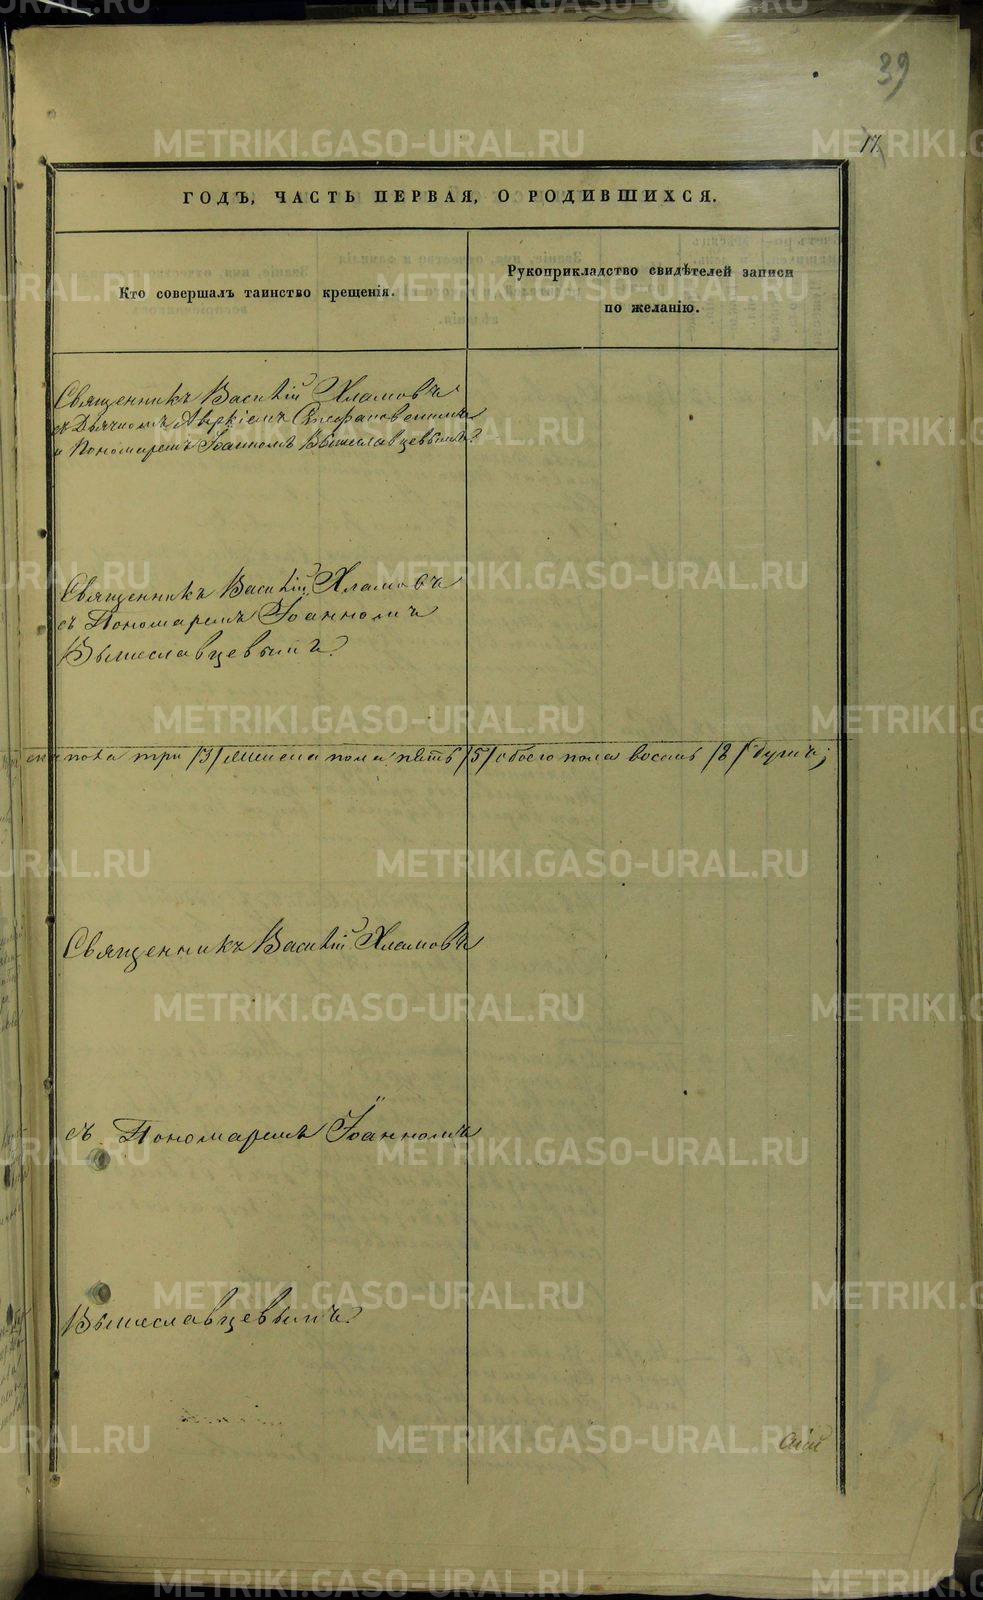 39
17
ГОДЪ, ЧАСТЬ ПЕРВАЯ, О РОДИВШИХСЯ.
Кто совершалъ таинство крещенія.
Рукоприкладство свидѣтелей записи
по желанію.
Священникъ Василій Хламовъ
съ Дьячкомъ Аркіемъ
и Пономаремъ Іоанномъ Вышеславцевымъ.
Священникъ Василій Хламовъ
съ Пономаремъ Іоанномъ
Вышеславцевымъ.
пола три /3/ женска пола пять /5/ обоего пола восемь /8/ душъ;
Священникъ Василій Хламовъ
съ Пономаремъ Іоанномъ
Вышеславцевымъ.
METRIKI.GASO-URAL.RU